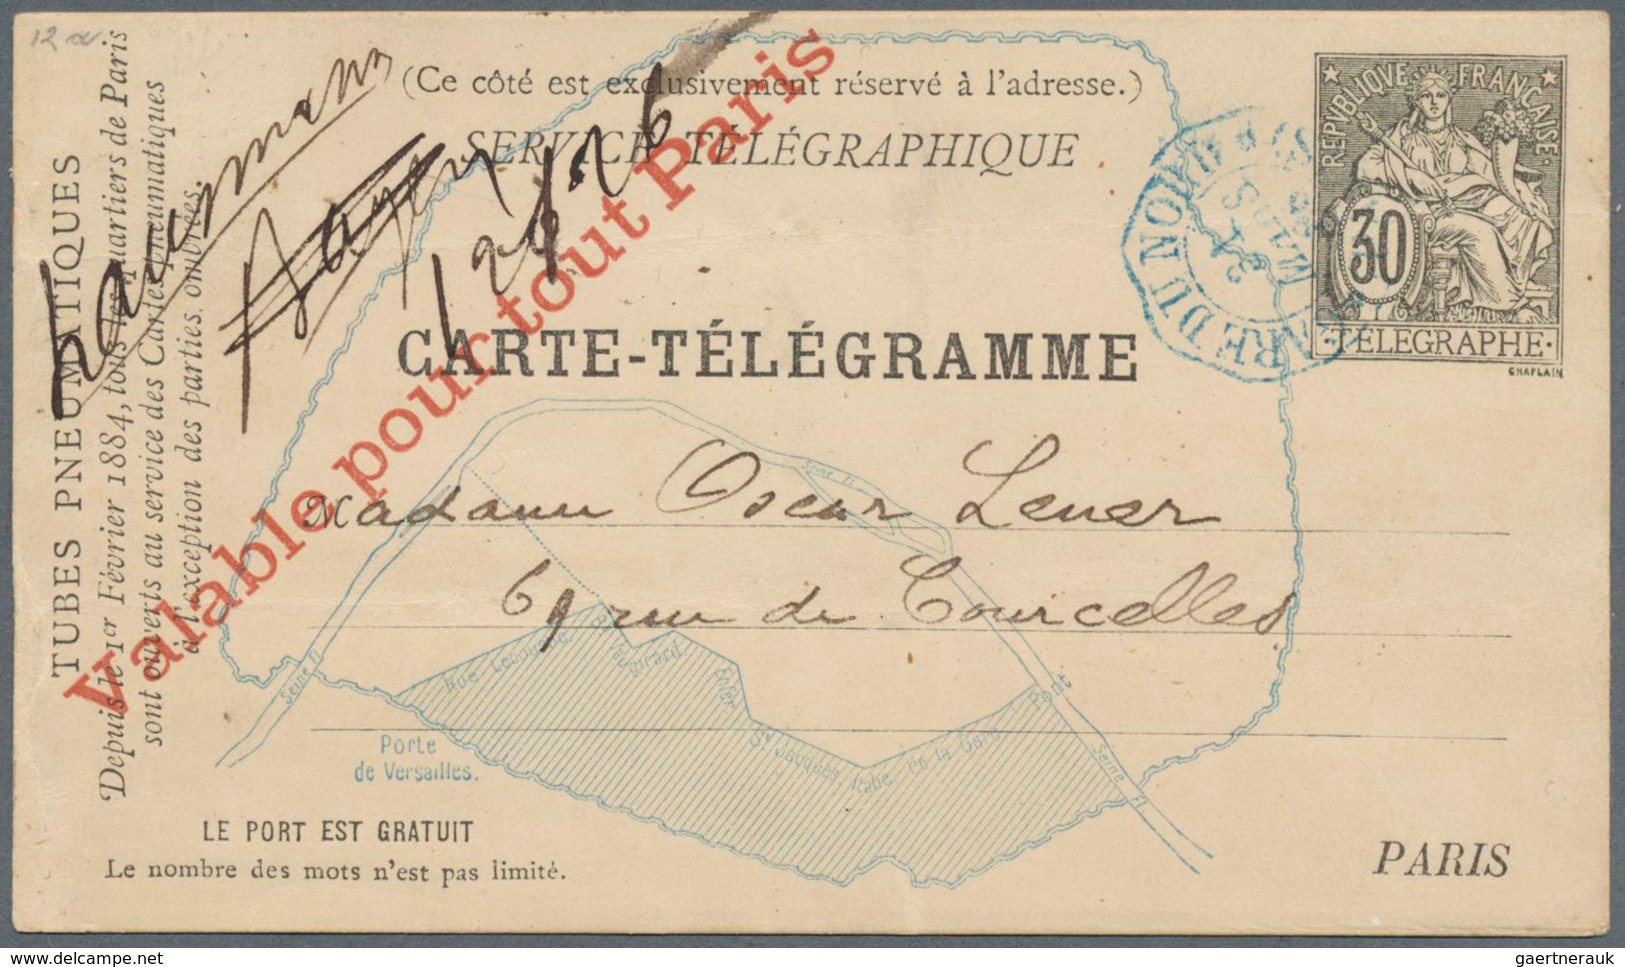 12 a
(Ce côté est exclusivement réservé à l'adresse.)
SERVICE TÉLÉGRAPHIQUE
CARTE-TÉLÉGRAMME
REPVBLIQVE FRANÇAISE.
30
·TÉLÉGRAPHE·
CHAPLAIN
GARE DU NORD
TUBES PNEUMATIQUES
Depuis le 1er Février 1884, tous les quartiers de Paris
sont ouverts au service des Cartes pneumatiques
à l'exception des parties ombrées.
Valable pour tout Paris
Madame Oscar
rue de Courcelles
Seine Fl.
Seine Fl.
Rue Lecourbe
Bd Vaugirard
Enfer
St Jacques, Italie, de la Gare
Pont
Seine Fl.
Porte
de Versailles.
LE PORT EST GRATUIT
Le nombre des mots n'est pas limité.
PARIS
gaertnerauk @ delcampe.net